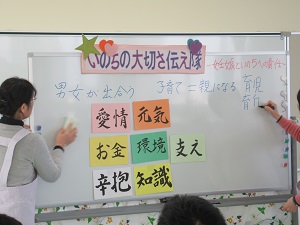 いのちの大切さ伝え隊
～妊娠といのちへの責任～
男女が出合う 子育て＝親になる 育児
育自
愛情 元気
お金 環境 支え
辛抱 知識